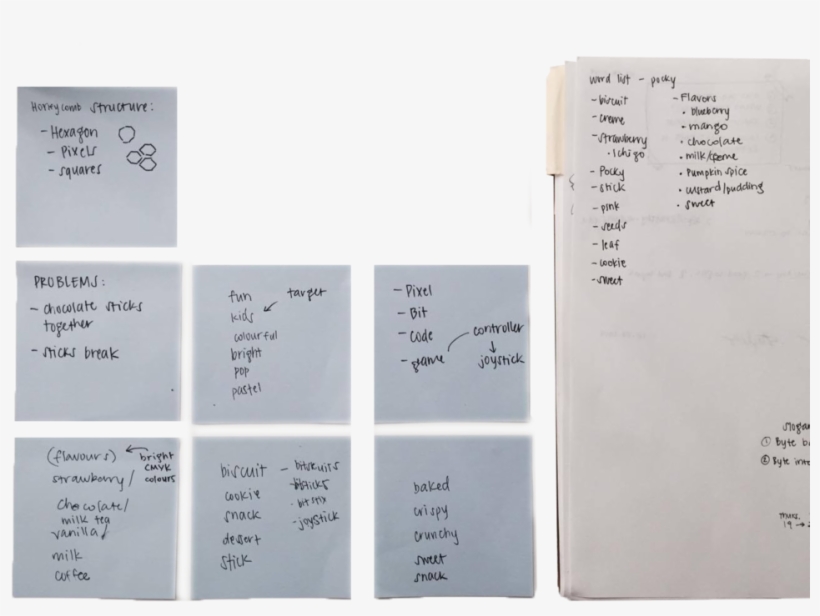 Honeycomb structure:
- Hexagon
- Pixels
- squares
PROBLEMS:
- chocolate sticks
together
- sticks break
fun
target
kids
colourful
bright
pop
pastel
- Pixel
- Bit
- Code
- game
controller
joystick
(flavours)
bright
CMYK
colours
strawberry/
chocolate/
milk tea
vanilla/
milk
coffee
biscuit
cookie
snack
dessert
stick
- bitskuits
- bitsticks
- bit stix
- joystick
baked
crispy
crunchy
sweet
snack
word list - pocky
- biscuit
- creme
- strawberry
• Ichigo
- Pocky
- stick
- pink
- seeds
- leaf
- cookie
- sweet
- Flavors
• blueberry
• mango
• chocolate
• milk/creme
• Pumpkin spice
• custard/pudding
• sweet
slogan
① Byte
② Byte into
19 →